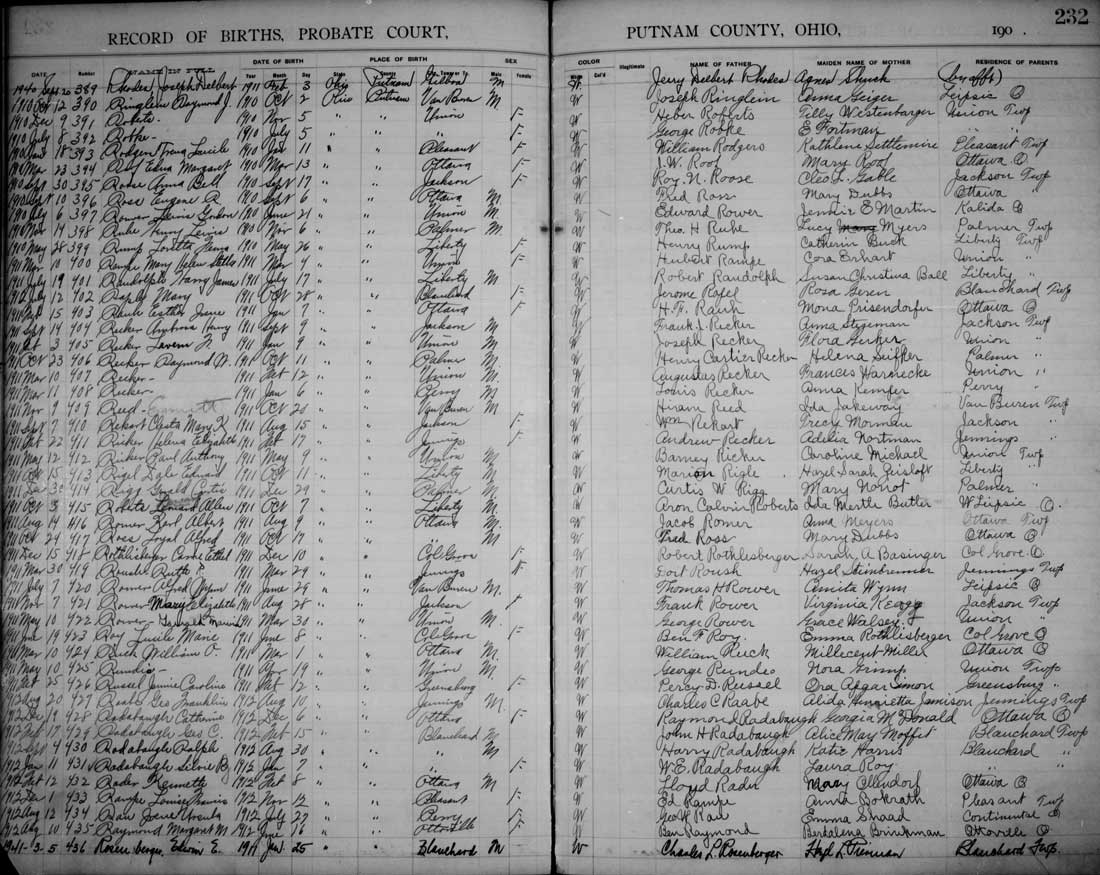 232
RECORD OF BIRTHS, PROBATE COURT, PUTNAM COUNTY, OHIO, 190 .
DATE OF BIRTH PLACE OF BIRTH SEX COLOR
DATE Number NAME IN FULL Year Month Day State County Male Female White Col'd Illegitimate NAME OF FATHER MAIDEN NAME OF MOTHER RESIDENCE OF PARENTS
1940 Sept 20 389 Rhodes Joseph Delbert 1911 3 Ohio Putnam Gilboa M W Jerry Delbert Rhodes Agnes Shuck
1910 Oct 12 390 Ringlein Raymond J. 1910 Oct 2 Ohio Putnam Van Buren M W Joseph Ringlein Anna Geiger Leipsic O
1910 Dec 9 391 1910 Nov 5 " " Union F W Heber Roberts Tilly Westenbarger Union Twp
1910 July 8 392 1910 July 5 " " " F W George Robke E Fortman " "
18 393 Rodgers Lucile 1910 11 " " Pleasant F W William Rodgers Kathlene Settlemire Pleasant Twp
1910 Mar 23 394 Edna Margaret 1910 Mar 13 " " Ottawa F W J. W. Roof Mary Roof Ottawa O
1910 Sept 30 395 Roose Anna Bell 1910 Sept 17 " " Jackson F W Roy. N. Roose Cleo L. Guble Jackson Twp
1910 Sept 10 396 Ross Eugene R 1910 Sept 6 " " Ottawa M W Fred Ross Mary Dubbs Ottawa "
1910 July 6 397 Rower Gordon 1910 June 21 " " Union M W Edward Rower Jennie E Martin Kalida O
1910 Nov 14 398 Ruhe Henry 1910 Nov 6 " " Palmer M W Theo H Ruhe Lucy Mary Myers Palmer Twp
1910 May 28 399 Rump Loretta 1910 May 26 " " Liberty F W Henry Rump Catherin Buck Liberty Twp
1911 Mar 10 400 Rampe Mary Helen 1911 Mar 4 " " Union F W Hubert Rampe Cora Erhart Union "
1911 July 19 401 Randolph Harry James 1911 July 17 " " Liberty M W Robert Randolph Susan Christina Ball Liberty "
July 12 402 Mary 1911 Oct 28 " " Blanchard F W Jerome Rafel Rosa Geren Blanchard Twp
15 403 Esther 1911 Jan 7 " " Ottawa F W H. H. Rauh Mona Prisendorfer Ottawa O
1911 Sept 14 404 Recker Ambrose Henry 1911 Sept 9 " " Jackson M W Frank J. Recker Anna Stegeman Jackson Twp
3 405 Recker Lavern 1911 Jan 9 " " Union M W Joseph Recker Flora Union "
1911 Oct 23 406 Recker Raymond 1911 Oct 11 " " Palmer M W Henry Cartier Recker Helena Seiffer Palmer "
1911 Mar 10 407 Recker - 1911 Feb 12 " " Union M W Augustas Recker Frances Warnecke Union "
1911 Mar 11 408 Recker - 1911 Jan 6 " " Perry M W Louis Recker Anna Kemper Perry "
1911 Nov 9 409 Reed - Emmett 1911 Oct 20 " " Van Buren M W Hiram Reed Ida Jakeway Van Buren Twp
1911 Sept 7 410 Mary 1911 Aug 15 " " Jackson F W Wm Rekart Trecy Morman Jackson "
1911 22 411 Ricker Helena Elizabeth 1911 Feb 17 " " Jennings F W Andrew Recker Adelia Nortman Jennings "
1911 May 12 412 Ricker Paul Anthony 1911 May 9 " " Union M W Barney Ricker Caroline Michael Union Twp
1911 Oct 15 413 Rigel Dale Edward 1911 Oct 11 " " Liberty M W Marion Rigle Hazel Sarah Geisloft Liberty "
1911 Dec 30 414 Rigg 1911 Dec 29 " " Palmer M W Curtis W Rigg Mary Noriot Palmer "
1911 Oct 3 415 Roberts Allen 1911 Oct 7 " " Liberty M W Aron Calvin Roberts Ida Mertle Butler W Leipsic O.
1911 Aug 14 416 Romer Karl Albert 1911 Aug 9 " " Ottawa M W Jacob Romer Anna Meyers Ottawa Twp
1911 Oct 24 417 Ross Loyal Alfred 1911 Oct 17 " " " M W Fred Ross Mary Dubbs Ottawa O
1911 Dec 15 418 Rothlisberger Ethel 1911 Dec 10 " " Col Grove F W Robert Rothlisberger Sarah A Basinger Col Grove O
1911 Mar 30 419 Roush Ruth 1911 Mar 29 " " Jennings W Dort Roush Hazel Steinbrenner Jennings Twp
July 7 420 Rower Alfred Wynn 1911 June 29 " " Van Buren M W Thomas H Rower Amita Wynn Leipsic O
1911 Nov 7 421 Rower Mary Elizabeth 1911 Aug 28 " " Jackson F W Frank Rower Virginia Jackson Twp
1911 May 10 422 Rower - 1911 Mar 30 " " Union M W George Rower Grace Walsey Union "
1911 June 19 423 Roy Lucile Marie 1911 June 8 " " Col Grove F W Ben F Roy. Emma Rothlisberger Col Grove O
1911 Mar 10 424 Ruck William O. 1911 Mar 1 " " Ottawa M W William Ruck Millecent Miller Ottawa O
1911 May 10 425 Rundis - 1911 Apr 19 " " Union M W George Rundes Nora Gimp Union Twp
1911 25 426 Russel Jennie Caroline 1911 12 " " Greensburg F W Percy D. Russel Ora Apgar Simon Greensburg "
1912 Aug 20 427 Raabe Geo Franklin 1912 Aug 10 " " Jennings M W Charles C Raabe Alida Henrietta Jamison Jennings Twp
1912 Dec 19 428 Radabaugh Catherine 1912 Dec 6 " " Ottawa F W Raymond Radabaugh Georgia McDonald Ottawa O
1912 Feb 17 429 Radabaugh Geo C. 1912 Feb 15 " " Blanchard M W John H Radabaugh Alice May Moffit Blanchard Twp
1912 Sept 4 430 Radabaugh Ralph 1912 Aug 30 " " " M W Harry Radabaugh Katie Harris Blanchard "
1912 Jan 11 431 Radabaugh 1912 Jan 7 " " " F W W. E. Radabaugh Laura Roy " "
1912 Feb 12 432 Rader Kennette 1912 Feb 8 " " Ottawa M W Lloyd Rader Mary Ellendorf Ottawa O
1912 Dec 1 433 Rampe Louise 1912 Nov 12 " " Pleasant F W Ed Rampe Anna Bokrath Pleasant Twp
1912 Aug 12 434 Rau 1912 July 27 " " Perry F W Geo W Rau Emma Shaad Continental O
1912 Aug 10 435 Raymond Margaret M. 1912 June 16 " " Ottoville F W Ben Raymond Berkalena Brinkman Ottoville O
1941-3-5 436 Rosenberger, Edwin E. 1911 Jan. 25 " " Blanchard M W Charles L. Rosenberger Hazel L. Blanchard Twp.